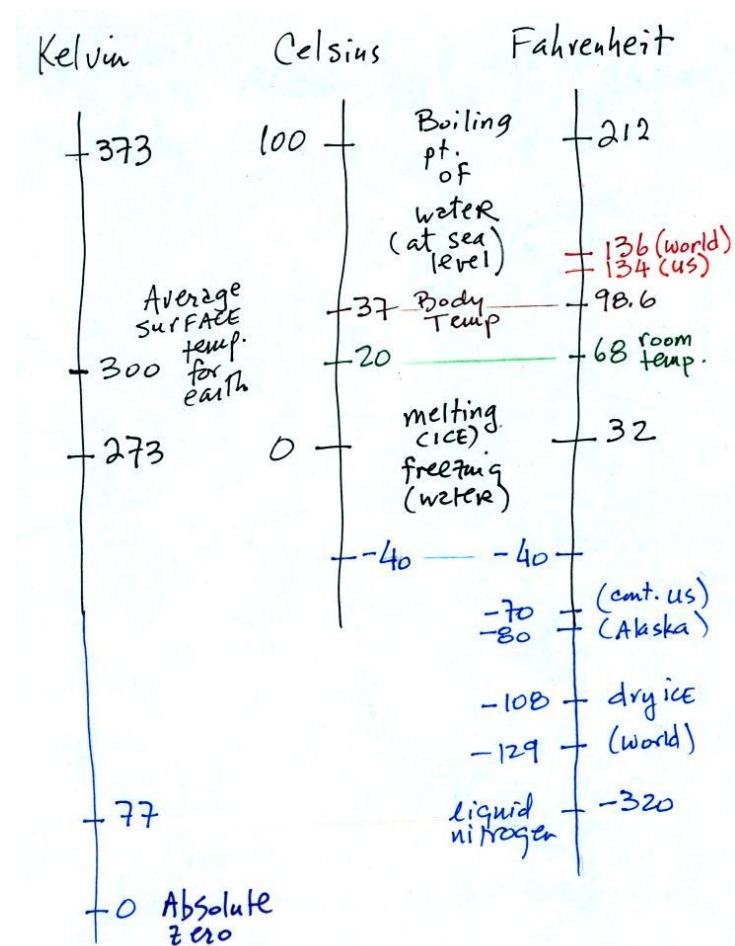 Kelvin Celsius Fahrenheit
373
100
Boiling
pt.
of
water
(at sea
level)
212
136 (world)
134 (us)
Average
SURFACE
temp.
for
earth
37 Body
Temp
98.6
300
20
68 room
temp.
273
0
melting
(ICE)
freezing
(water)
32
-40 -40
-70 (cont. us)
-80 (Alaska)
-108 dry ice
-129 (world)
77
liquid
nitrogen
-320
0 Absolute
zero